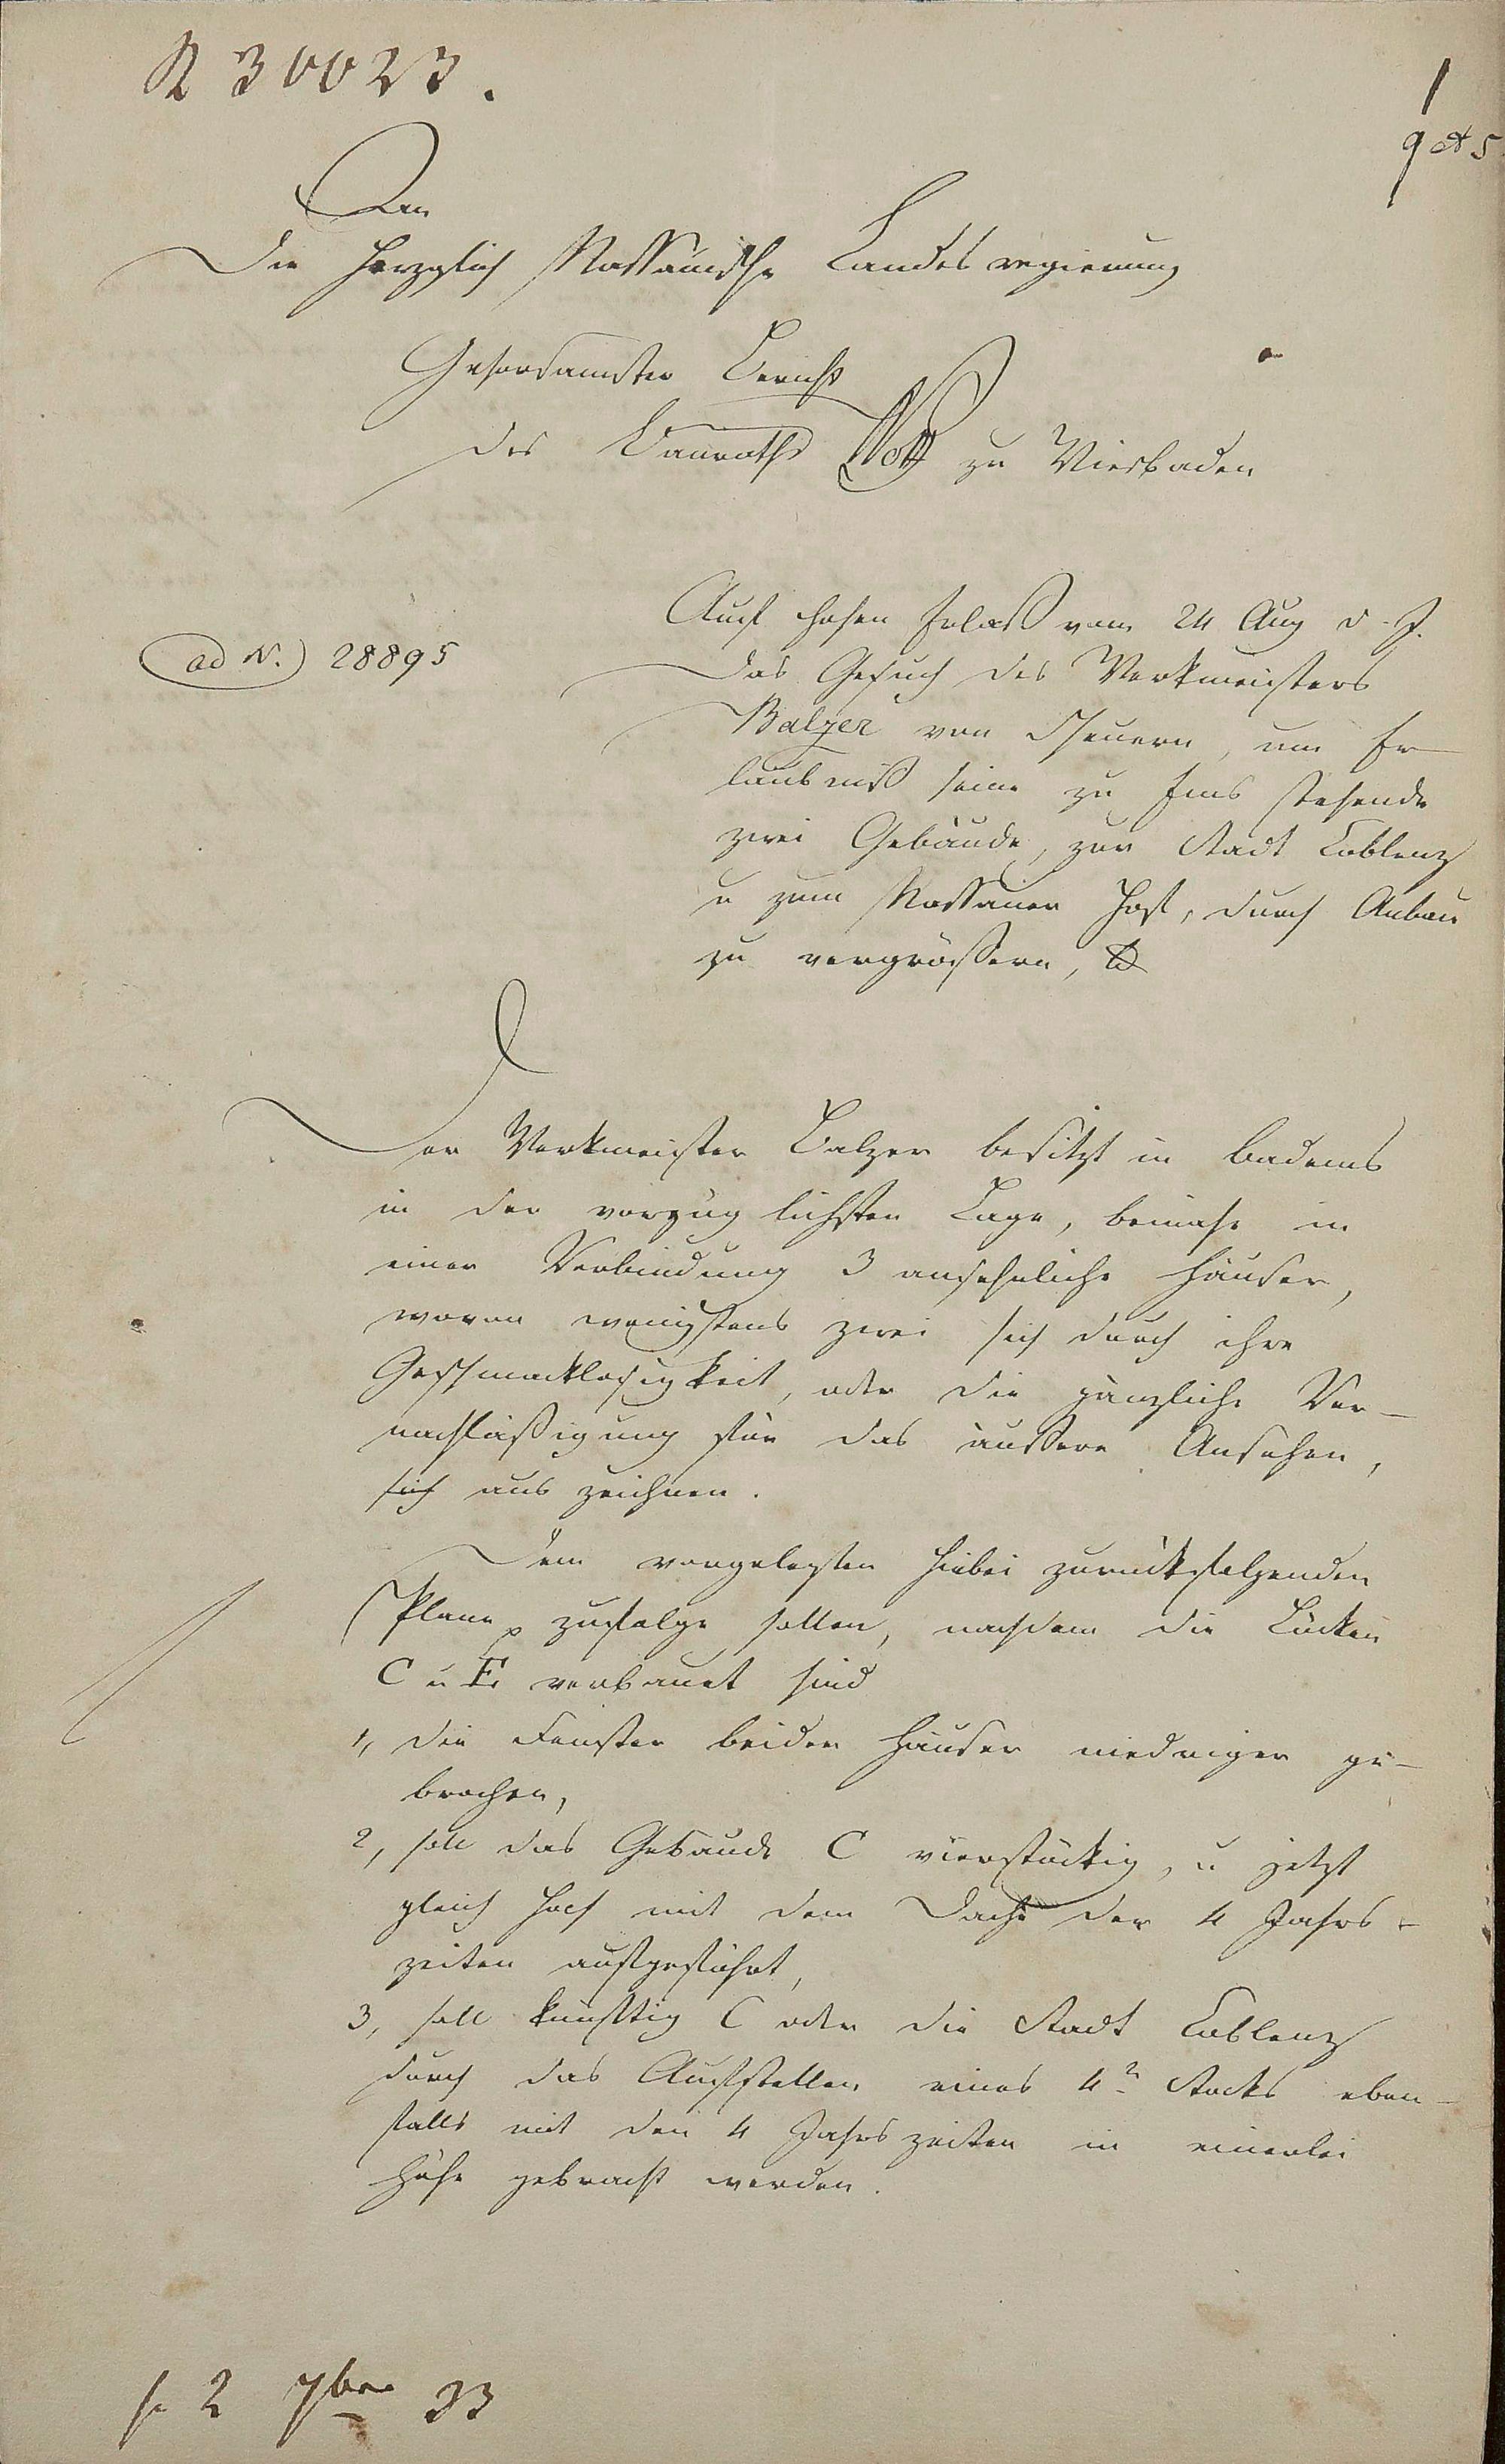 R 30023.
1
9 et 5
An
die Herzoglich Nassauische Landesregierung
Gehorsamster Bericht
des Bauraths zu Wiesbaden
ad N. 28895
Auf hohen Erlaß vom 24 Aug d. J.
das Gesuch des Werkmeisters
Balzer von Theuern, um Er-
laubniß seine zu Ems stehende
zwei Gebäude, zur Stadt Coblenz
u zum Nassauer Hof, durch Anbau
zu vergrössern,
Der Werkmeister Balzer besitzt in Badems
in der vorzüglichsten Lage, beinahe in
einer Verbindung 3 ansehnliche Häuser,
wovon wenigstens zwei sich durch ihre
Geschmacklosigkeit, oder die gänzliche Ver-
nachläßigung für das äussere Ansehen,
sich auszeichnen.
Dem vorgelegten hiebei zurückfolgenden
Plane zufolge sollen, nachdem die Lücken
C u E verbauet sind
1, die Fenster beider Häuser niedriger ge-
brochen,
2, soll das Gebäude C vierstöckig, u jetzt
gleich hoch mit dem Dache der 4 Jahrs-
zeiten aufgeführt,
3, soll künftig C oder die Stadt Coblenz
durch das Aufstellen eines 4n Stocks eben-
falls mit den 4 Jahrszeiten in einerlei
Höhe gebracht werden.
2 7ber 33